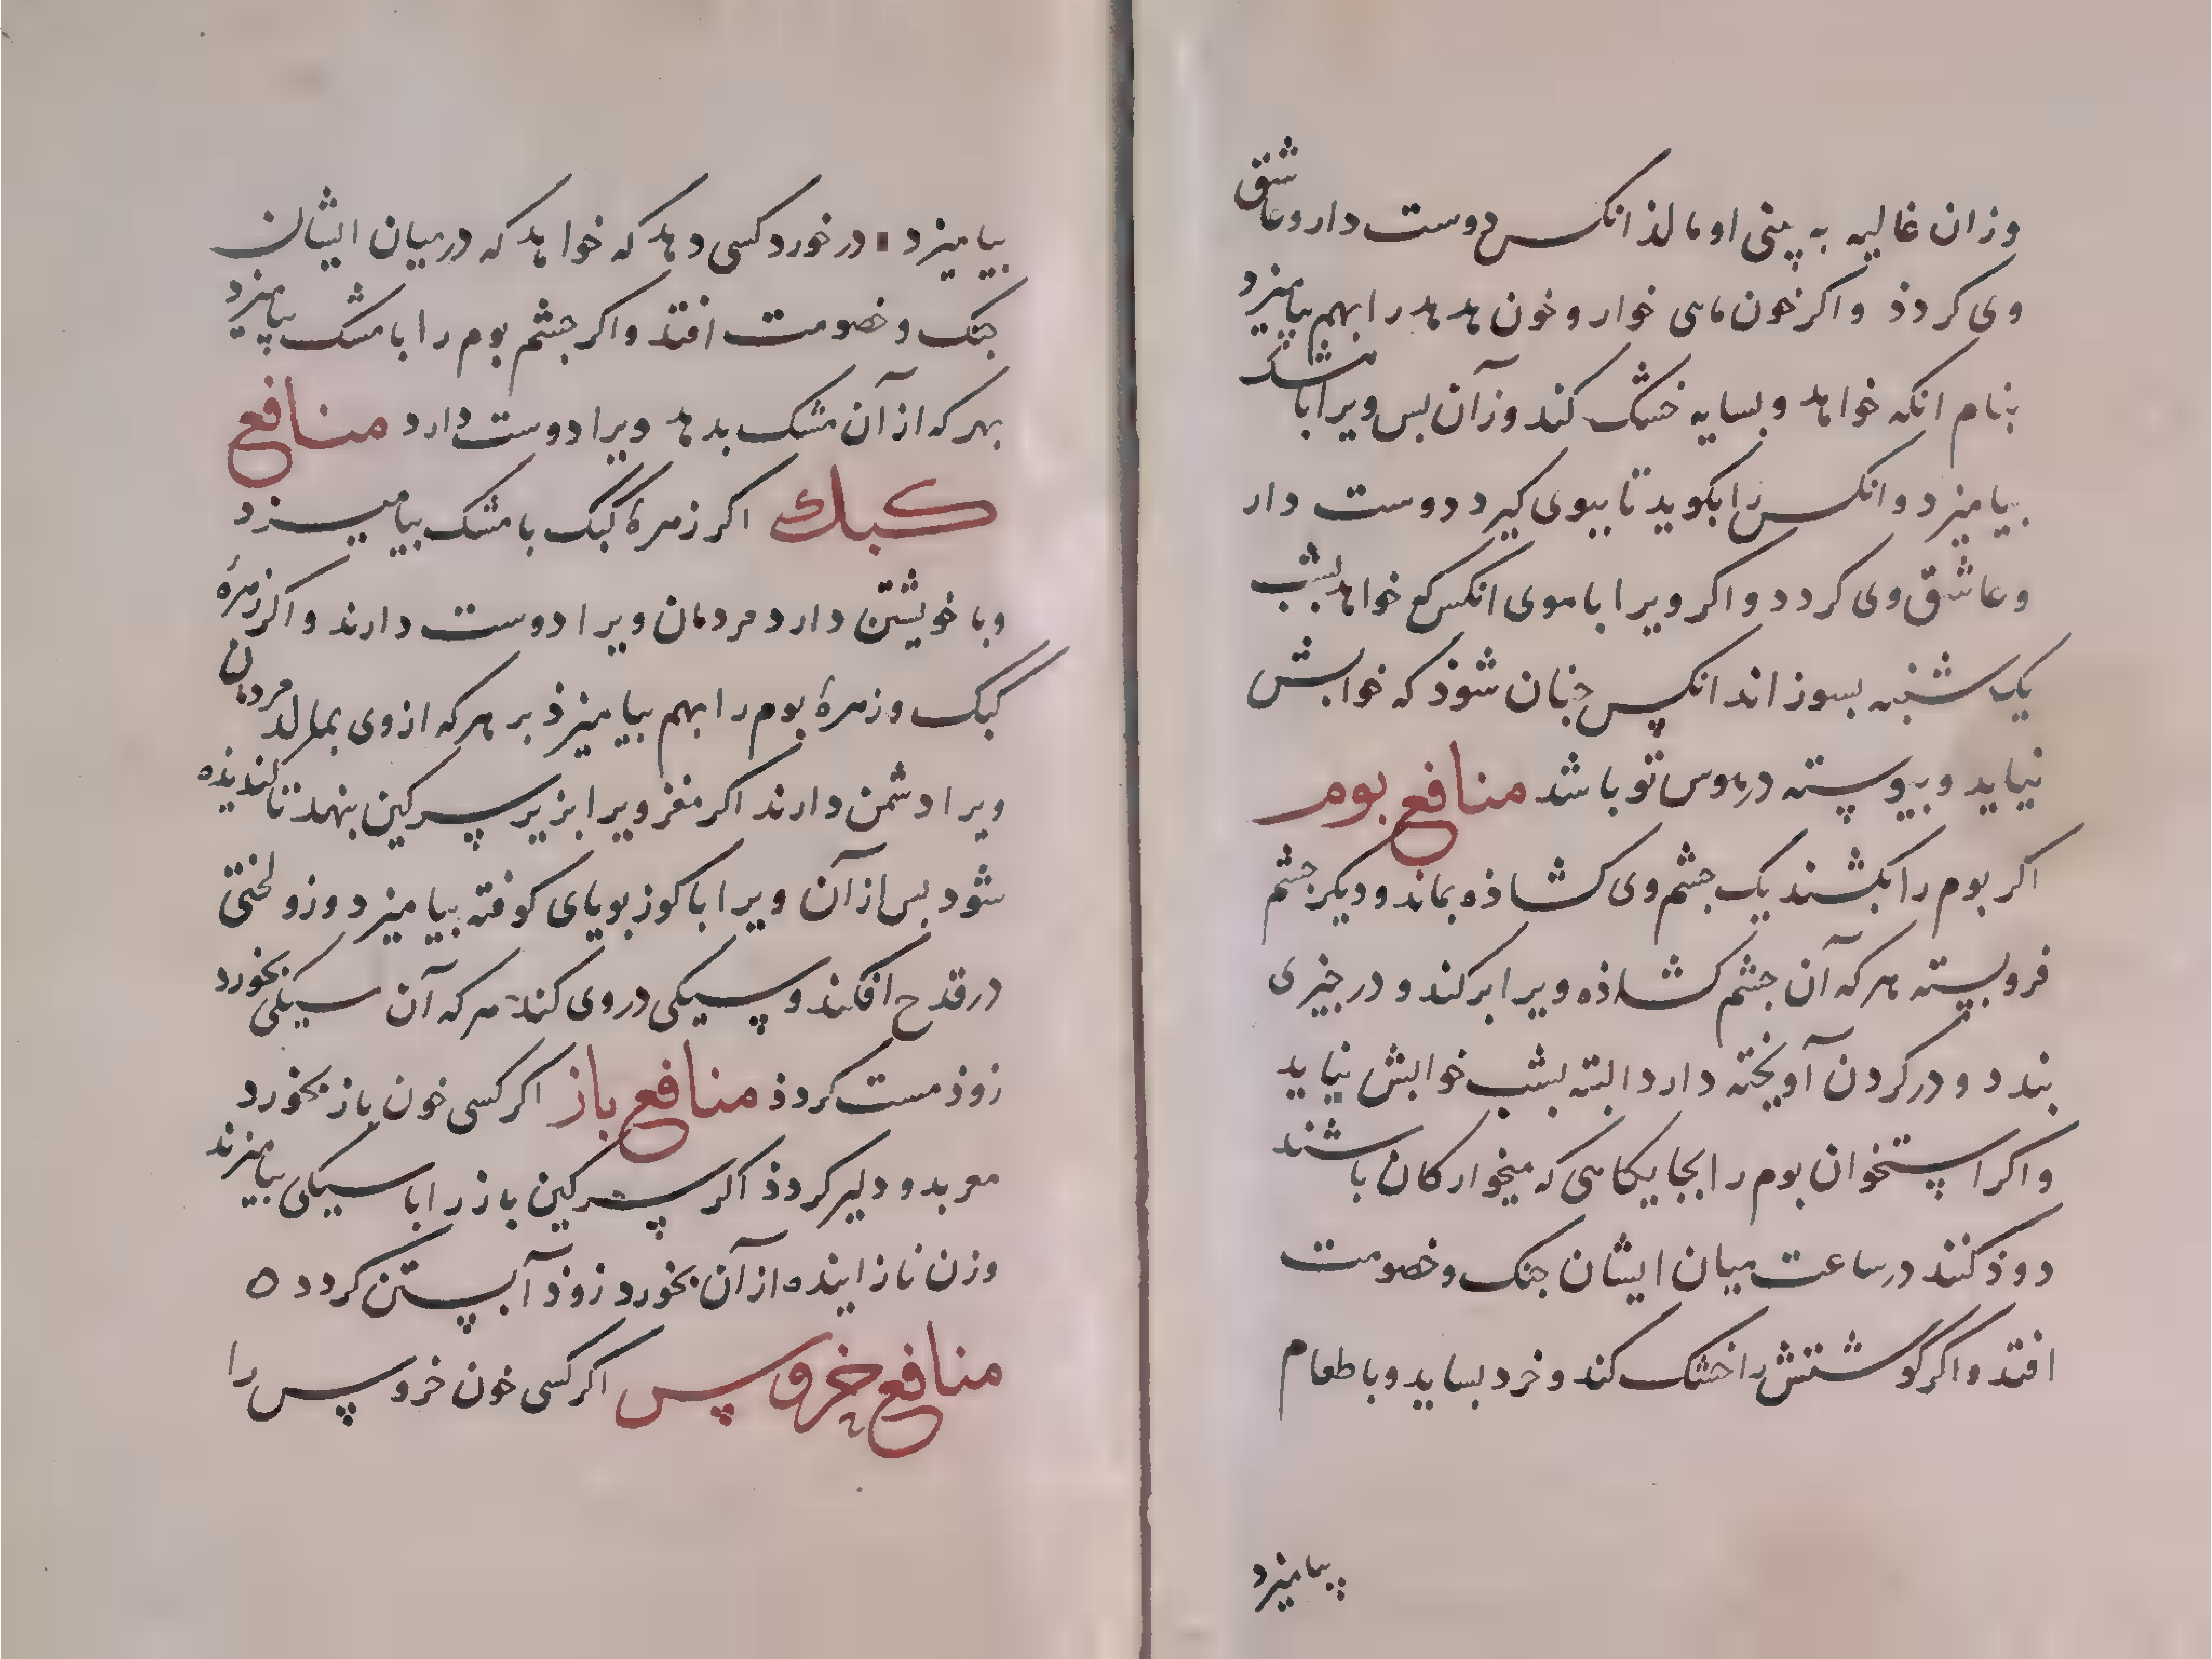 وزان غالیه به پنی او مالذ انکس دوست دار وعاشق
وی کردذ واکر خون ماهی خوار وخون هدهد را بهم بیامیزد
بنام انکه خواهد وبسایه خشک کند وزآن بس ویرا بامشک
بیامیزد وانکس را بکوید تا ببوی کیرد دوست دار
وعاشق وی کردد واکر ویرا با موی انکس کع خواهد بشب
یک شنبه بسوزاند انکس جنان شوذ که خوابش
نیاید وبیوسته درهوس تو باشد منافع بوم
اکر بوم را بکشند یک جشم وی کشاذه بماند ودیکر جشم
فروبسته هرکه آن جشم کشاذه ویرا برکند و در جیزی
بندد و در کردن آویخته دارد البته بشب خوابش نیاید
واکر استخوان بوم را بجایکاهی که میخوارکان باشند
دوذ کنند در ساعت میان ایشان جنک وخصومت
افتد واکر گوشتش را خشک کند وخرد بساید وبا طعام
بیامیزد
بیامیزد در خورد کسی دهد که خواهد که در میان ایشان
جنک وخصومت افتد واکر جشم بوم را با مشک بیامیزد
بهرکه از آن مشک بدهد ویرا دوست دارد منافع
کبک اکر زهرهٔ کبک با مشک بیامیزد
وبا خویشتن دارد مردمان ویرا دوست دارند واکر زهرهٔ
کبک وزهرهٔ بوم را بهم بیامیزذ بر هرکه از وی بمالد مردمان
ویرا دشمن دارند اکر مغز ویرا بزیر سرکین بنهد تا کندیذه
شود بس از آن ویرا با کوز بویای کوفته بیامیزد وزو لختی
در قدح افکند وسیکی در وی کند هرکه آن سیکی بخورد
زوذ مست کردذ منافع باز اکر کسی خون باز بخورد
معربد ودلیر کردذ اکر سرکین باز را با سیکی بیامیزند
وزن نازاینده از آن بخورد زوذ آبستن کردد ه
منافع خروس اکر کسی خون خروس را